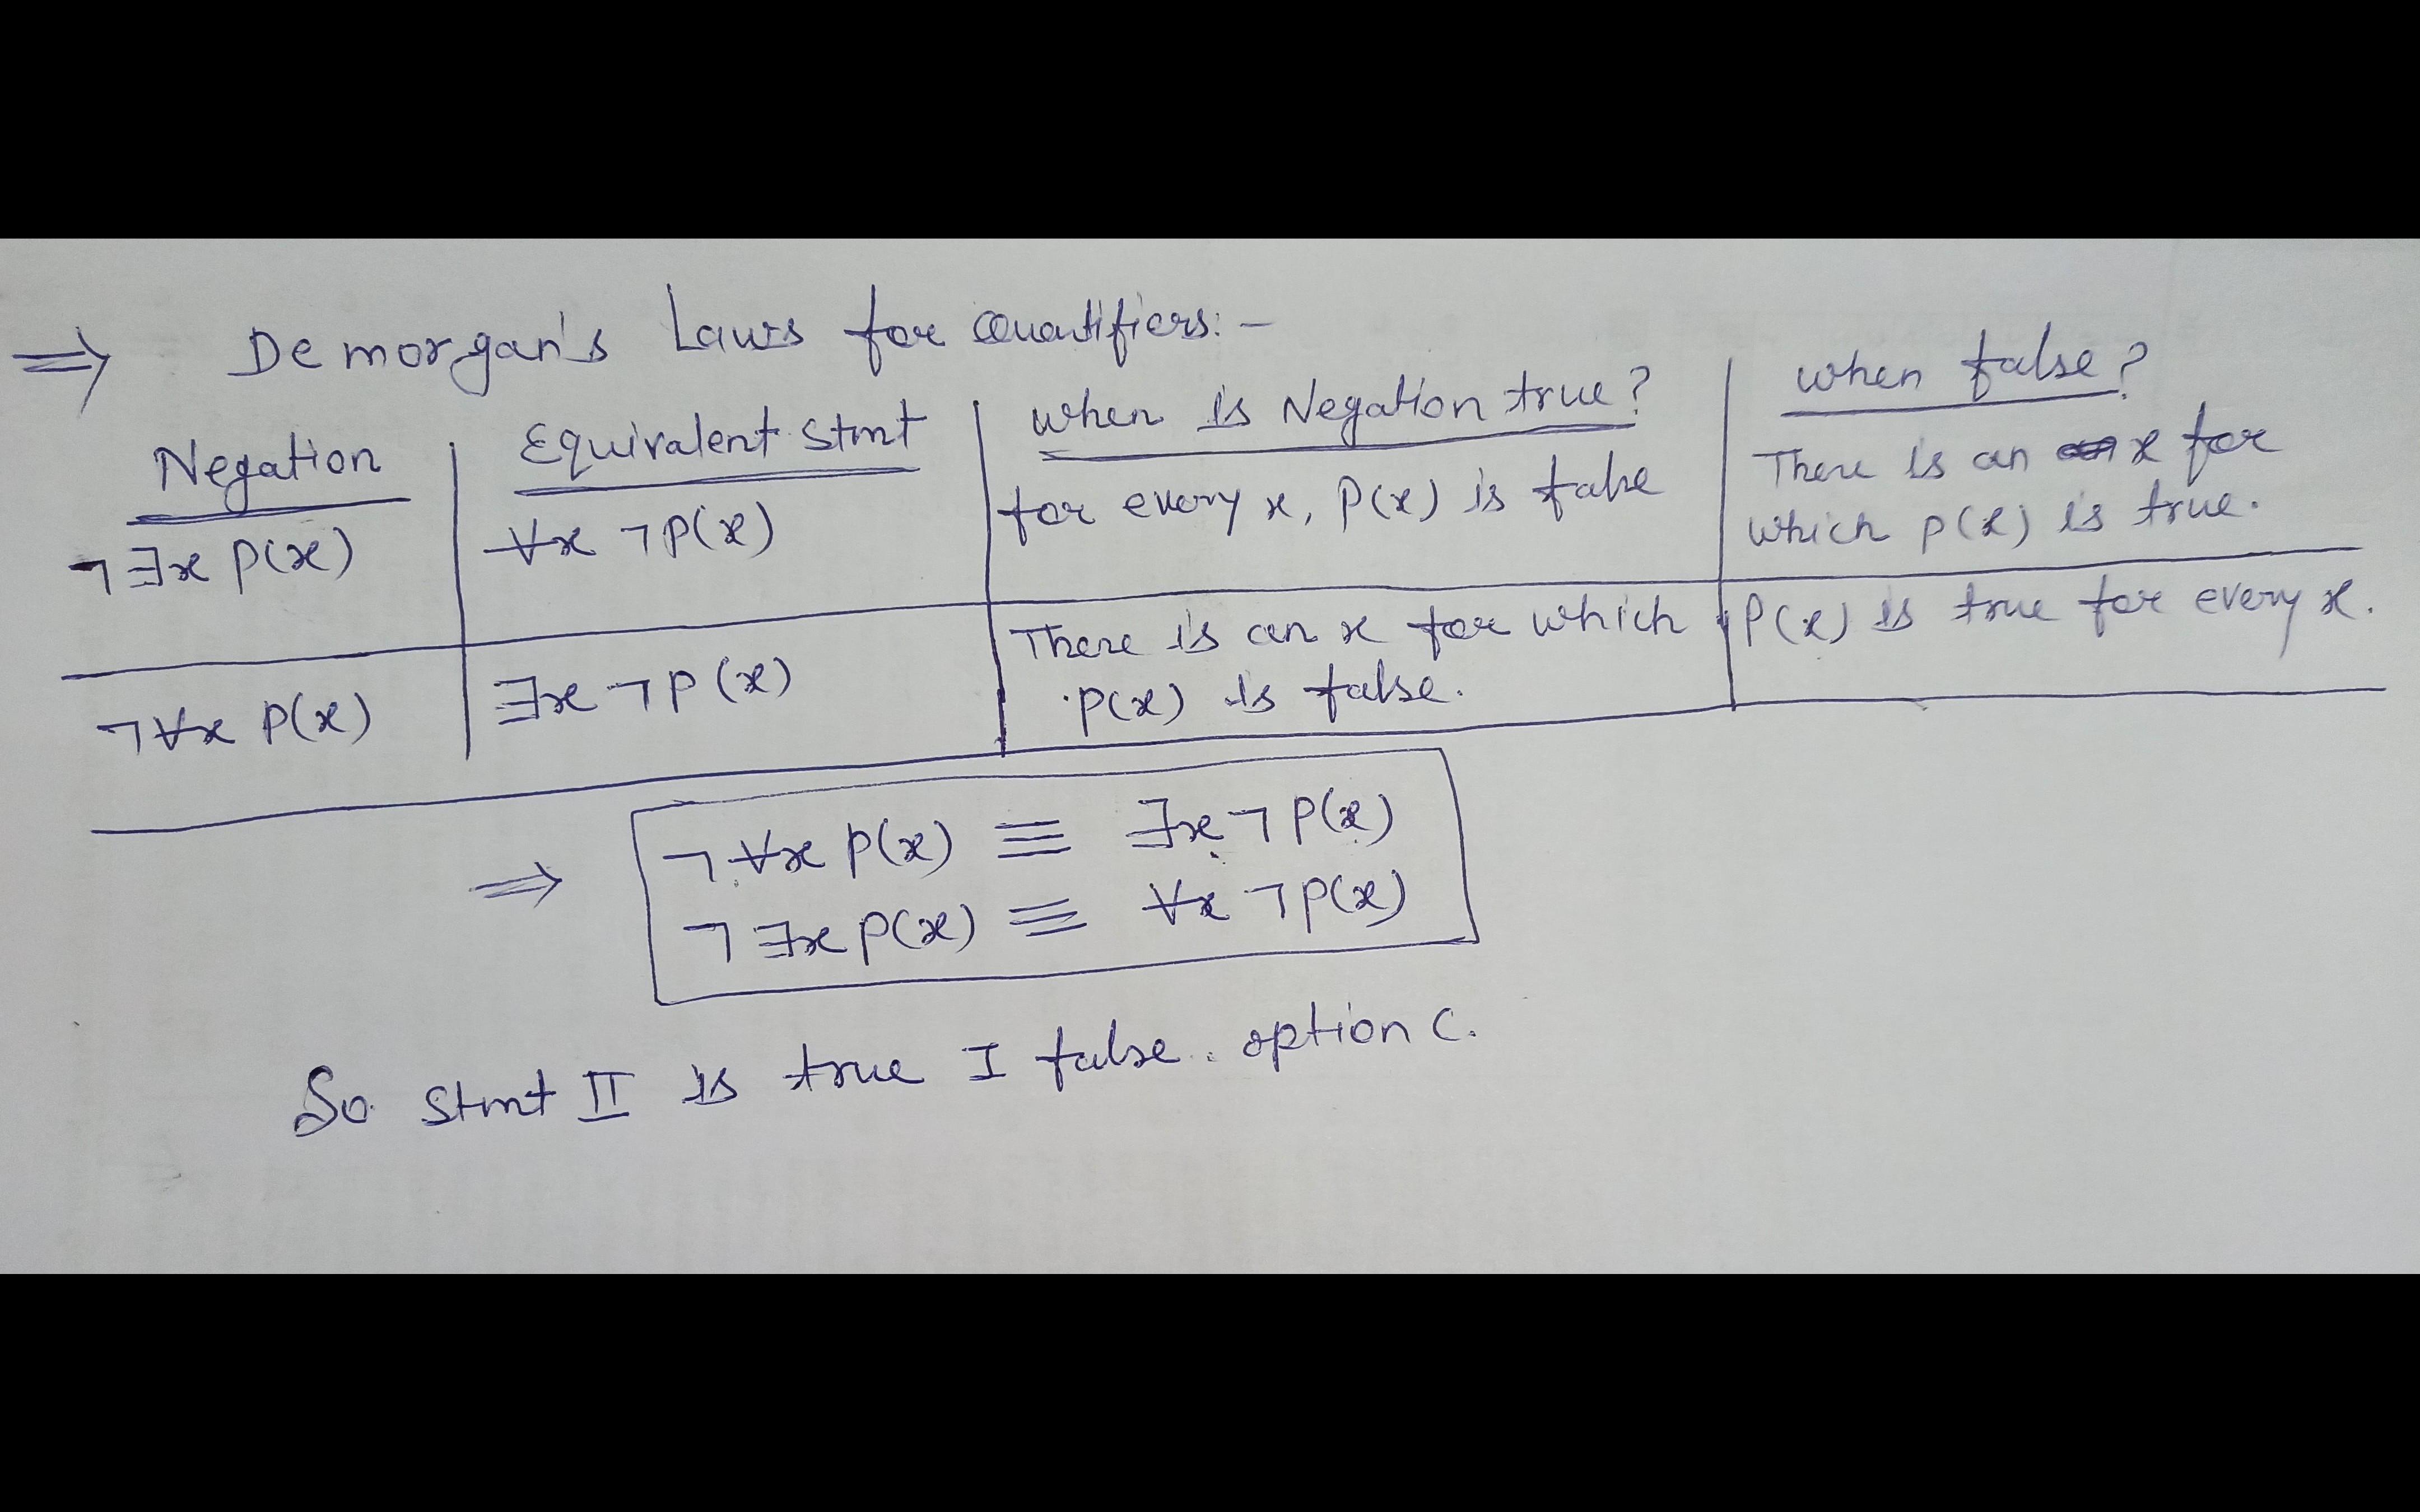 ⇒ Demorgan's Laws for Quantifiers:-
Negation | Equivalent Stmt | when is Negation true? | when false?
¬∃x P(x) | ∀x ¬P(x) | for every x, P(x) is false | There is an x for
which P(x) is true.
¬∀x P(x) | ∃x ¬P(x) | There is an x for which | P(x) is true for every x.
P(x) is false.
⇒ ¬∀x P(x) ≡ ∃x ¬P(x)
¬∃x P(x) ≡ ∀x ¬P(x)
So Stmt II is true I false. option C.